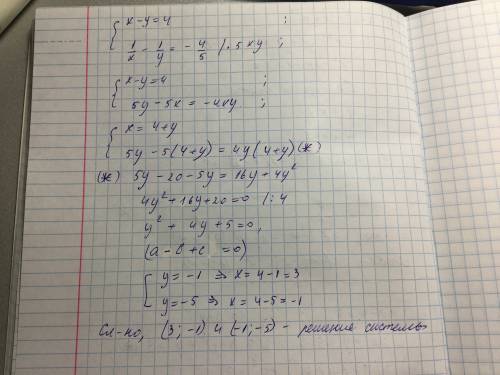 { x-y=4 ;
1/x - 1/y = - 4/5 /·5xy ;
{ x-y=4 ;
5y-5x=-4xy ;
{ x=4+y
5y-5(4+y)=4y(4+y) (*)
(*) 5y-20-5y=16y+4y²
4y²+16y+20=0 /:4
y²+4y+5=0,
(a-b+c=0)
[ y=-1 ⇒ x=4-1=3
y=-5 ⇒ x=4-5=-1
Сл-но, (3;-1) и (-1;-5) - решение системы